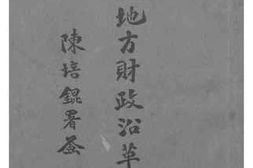 地方財政沿革
陳培錕署簽